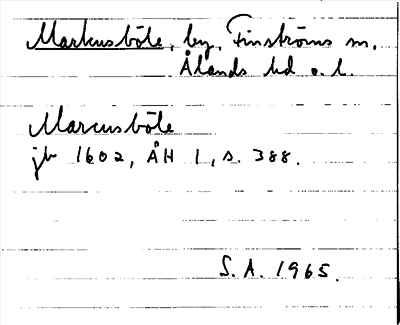 Markusböle, by, Finströms sn.
Ålands hd o. l.
Marcusböle
jb 1602, ÅH 1, s. 388.
S. A. 1965.